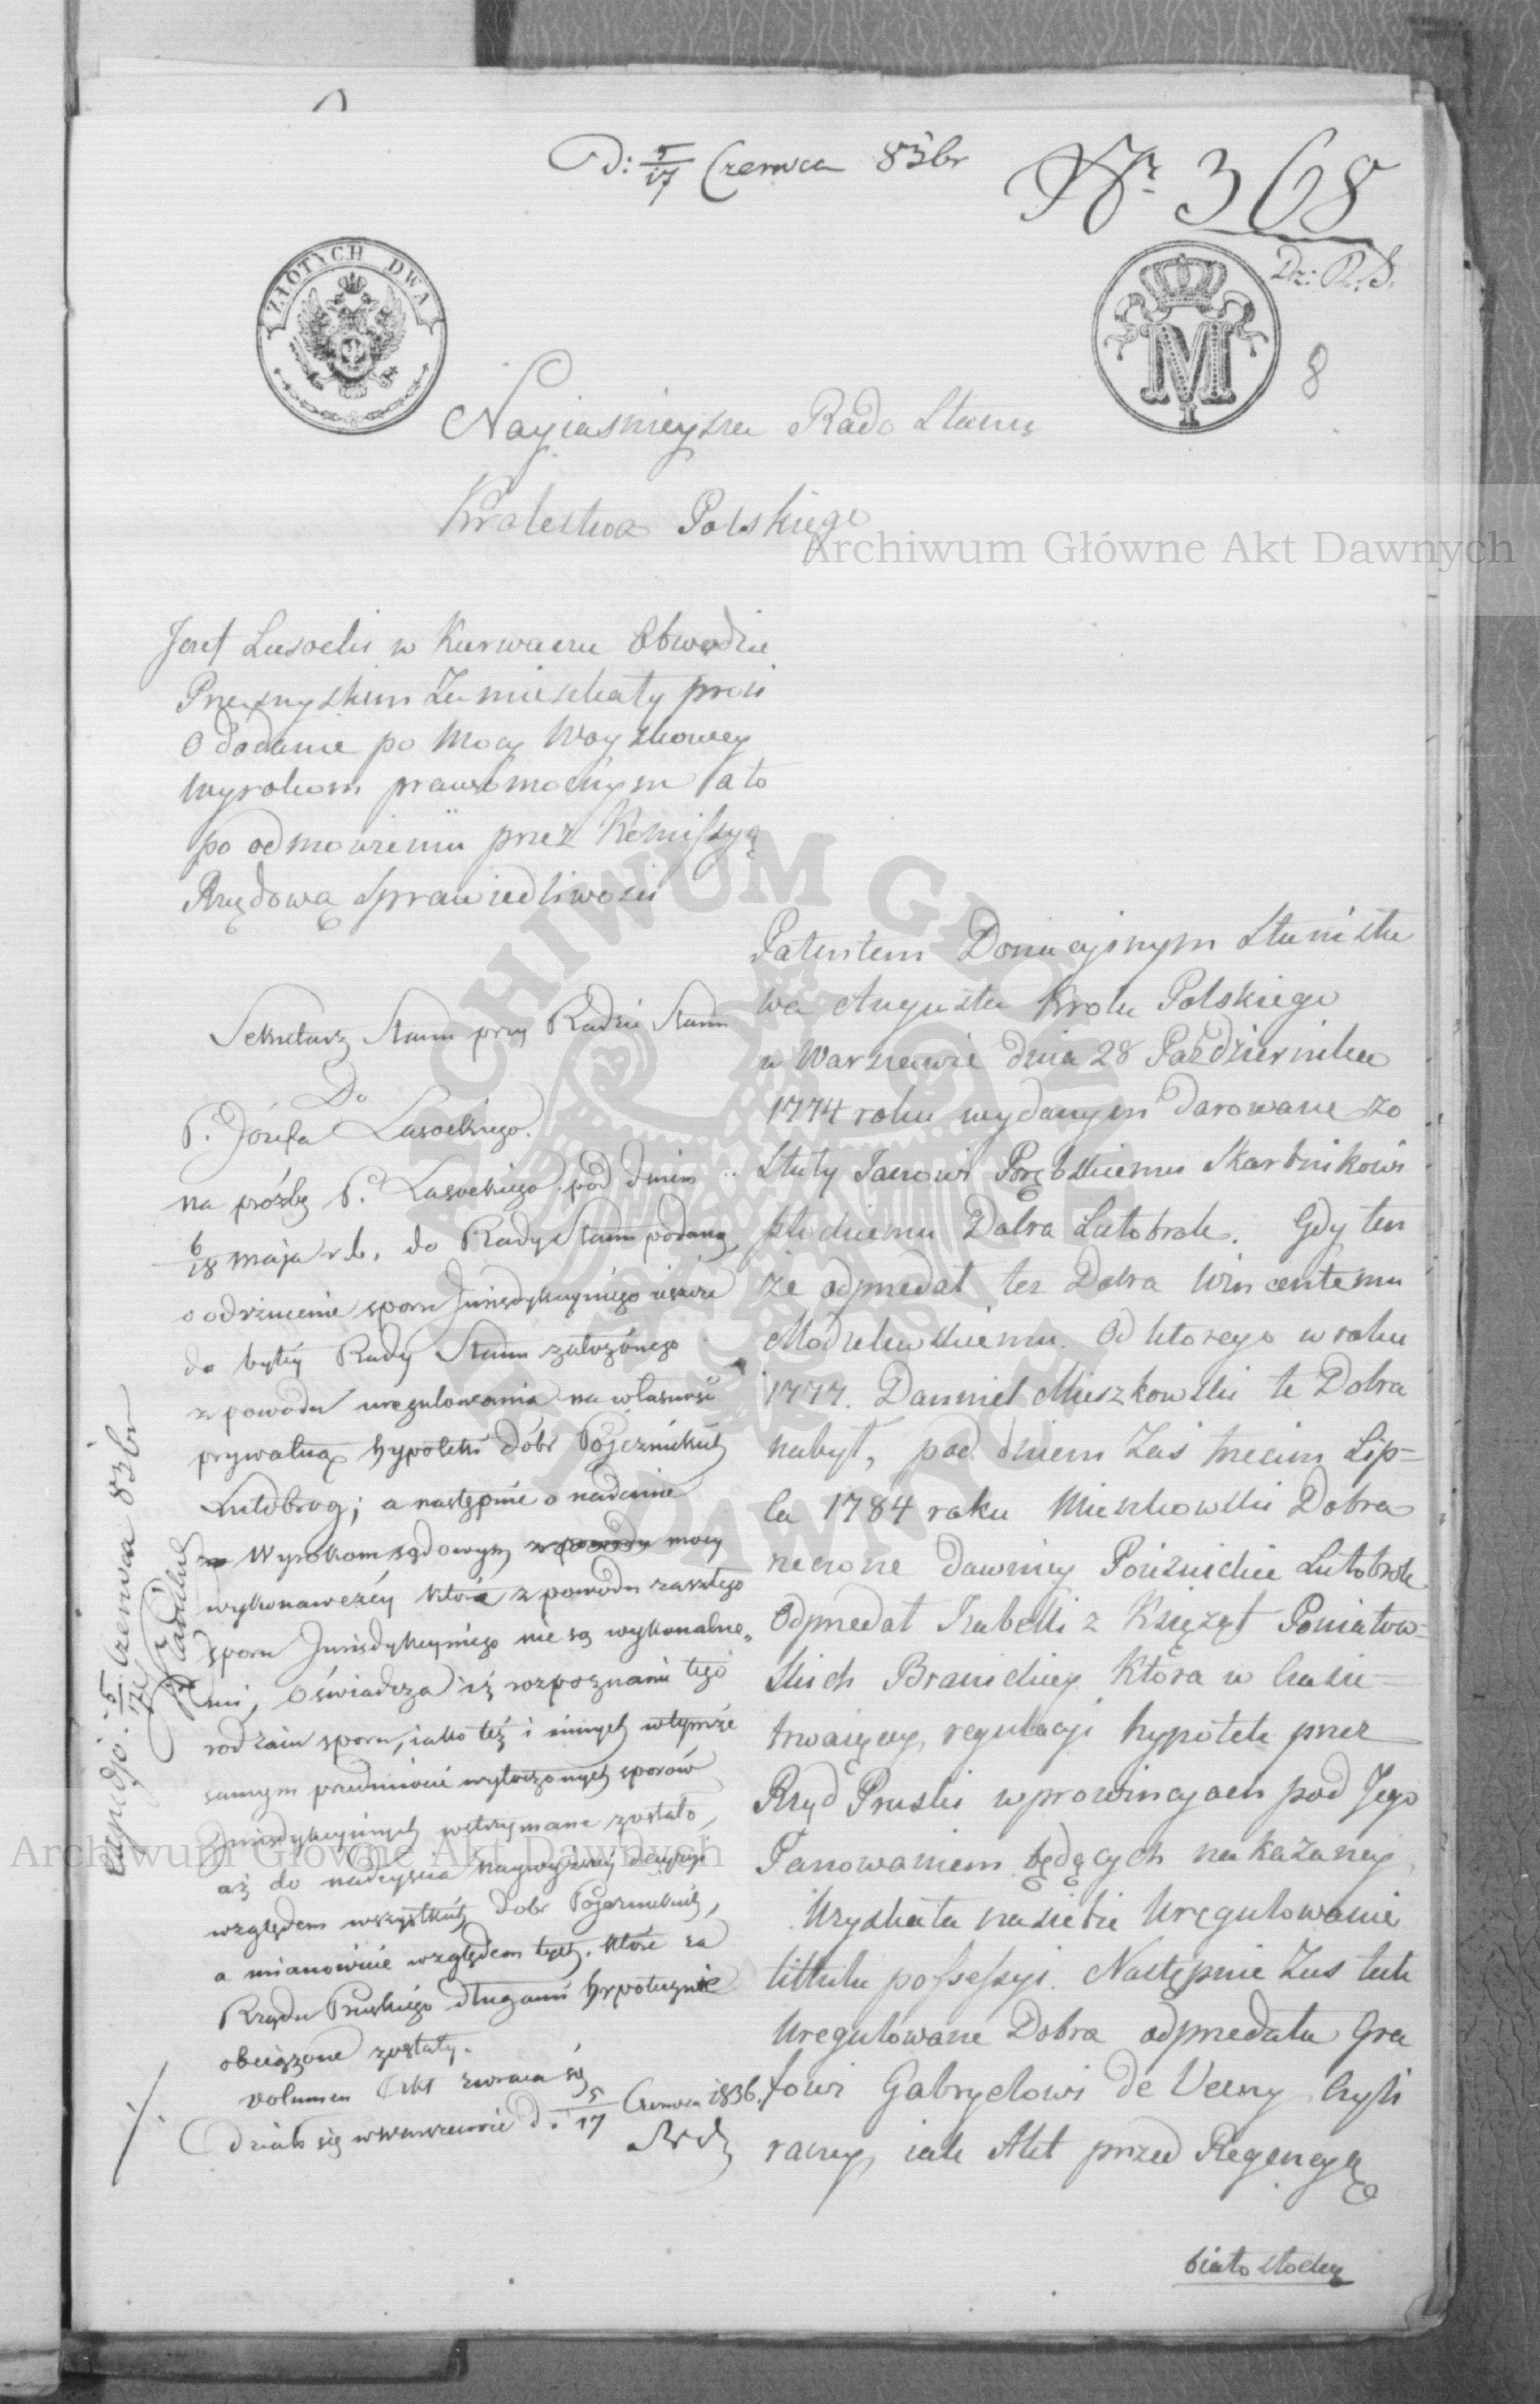 D: 5/17 Czerwca 836r
Nr 368
Dz: R. S.
ZŁOTYCH DWA
M
I
8
Nayiasnieysza Rado Stanu
Krolestwa Polskiego
Jozef Lasocki w Obwodzie
Przasnyskim Zamieszkały prosi
O dodanie po Mocy
wyrokom prawomocnym a to
po odmowieniu przez Komissyą
Rządową Sprawiedliwosci
Sekretarz Stanu przy Radzie Stanu
Do
P. Józefa Lasockiego.
na prośbę P. Lasockiego pod dniem
6/18 maja r. b. do Rady Stanu podaną,
o odrzucenie sporu Jurisdykcyjnego ieszcze
do byłéy Rady Stanu założonego
z powodu uregulowania na własność
prywatną hypoteki dóbr Pojezuickich
Lutobrog; a następnie o nadanie
Wyrokom sądowym mocy
wykonawczéy które z powodu zaszłego
sporu Jurisdykcyjnego nie są wykonalne-
mi, Oświadcza iż rozpoznanie tego
rodzaiu sporu, iako też i innych w tymże
samym przedmiocie wytoczonych sporów
Jurisdykcyjnych wstrzymane zostało,
aż do nadeyścia naywyższéy decyzyi
względem wszystkich dóbr Pojezuickich,
a mianowicie względem tych, które za
Rządu Pruskiego długami hypotecznie
obciążone zostały.
Volumen Akt zwraca się
Działo się w Warszawie d. 5/17 Czerwca 1836.
Expedjo: 5/17 Czerwca 836r
Patentem Donacyjnym Stanisła
wa Augusta Krola Polskiego
w Warszawie dnia 28 Października
1774 roku wydanym darowane zo
stały Janowi Porębskiemu Skarbnikowi
płockiemu Dobra Lutobrok. Gdy ten
że odprzedał tez Dobra Wincentemu
Modzelewskiemu. Od ktorego w roku
1777. Danniel Mieszkowski te Dobra
nabył, pod dniem Zaś trzecim Lip-
ca 1784 roku Mieszkowski Dobra
rzeczone dawniey Poiezuickie Lutobrok
Odprzedał Izabelli z Książąt Poniatow-
skich Branickiey Która w Czasie
trwaiącey regulacyi hypotek przez
Rząd Pruski w prowincyach pod Jego
Panowaniem będących nakazaney,
Uzyskała na siebie Uregulowanie
tittulu possessyi. Następnie Zas tak
Uregulowane Dobra odprzedała Gra
fowi Gabryelowi de
iak Akt przed Regencyą
białostocką